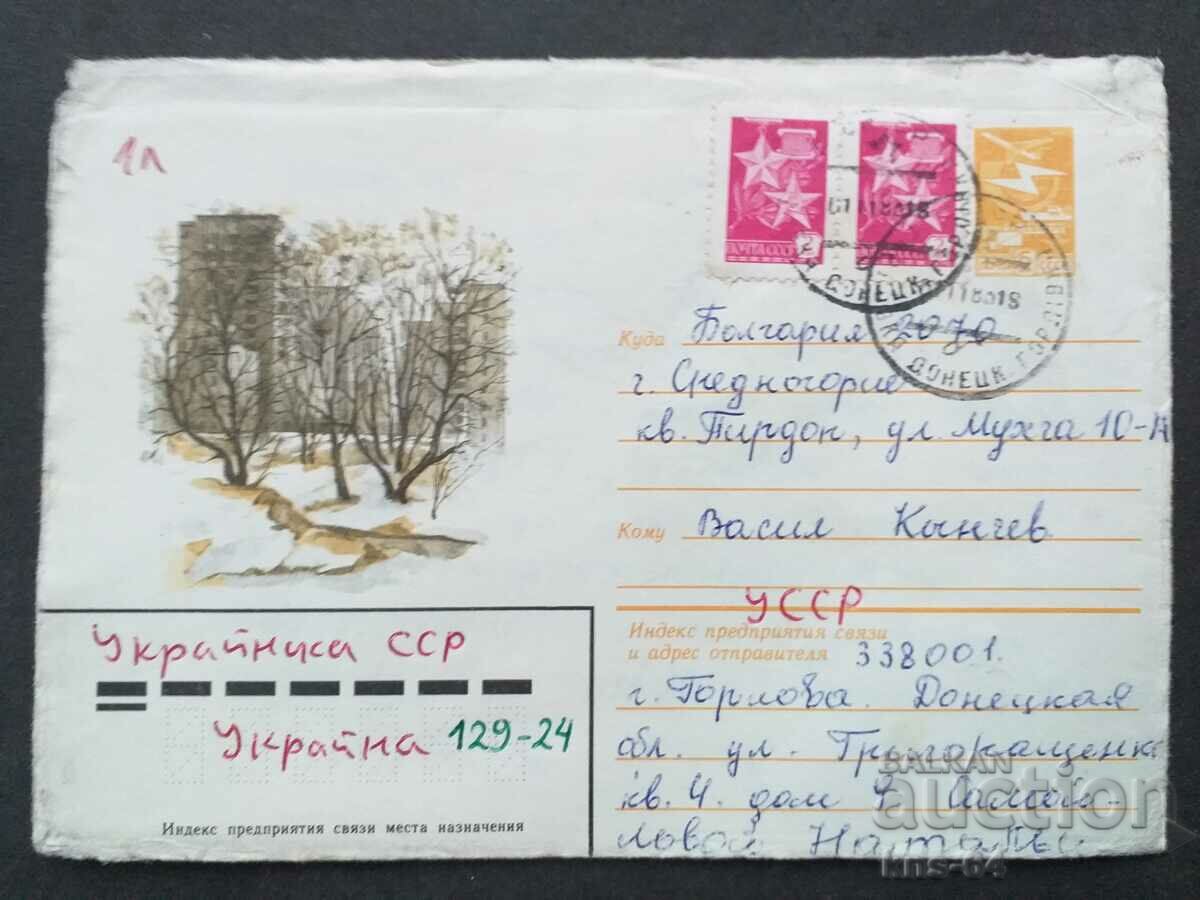 1л
ПОЧТА СССР
ДОНЕЦК. ГОР.
ДОНЕЦК. ГОР.
Куда Болгария 2070
г. Средногорие
кв. Пирдоп, ул. Мухга 10-А
Кому Васил Кънчев
УССР
Индекс предприятия связи
и адрес отправителя 338001.
г. Горловка. Донецкая
обл. ул.
кв. 4. дом
ловой Натальи
Украйнска ССР
Украйна 129-24
Индекс предприятия связи места назначения
BALKAN
auction
kns-64